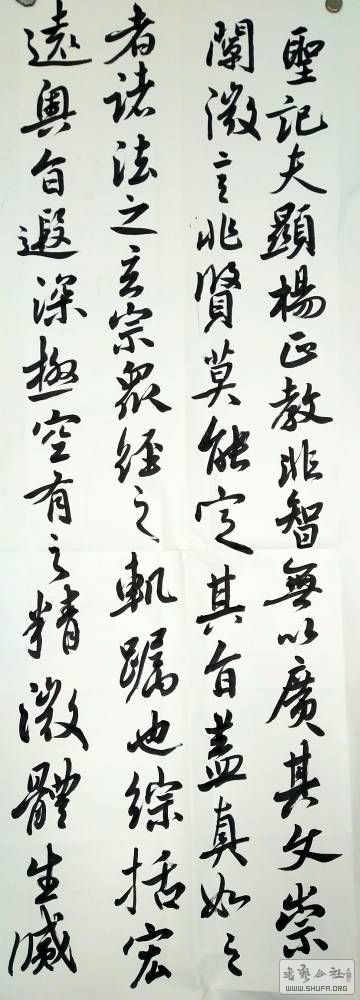 聖記夫顯揚正教非智無以廣其文崇
闡微言非賢莫能定其旨蓋真如之
者諸法之玄宗眾經之軌躅也綜括宏
遠奧旨遐深極空有之精微體生滅
書藝公社
WWW.SHUFA.ORG